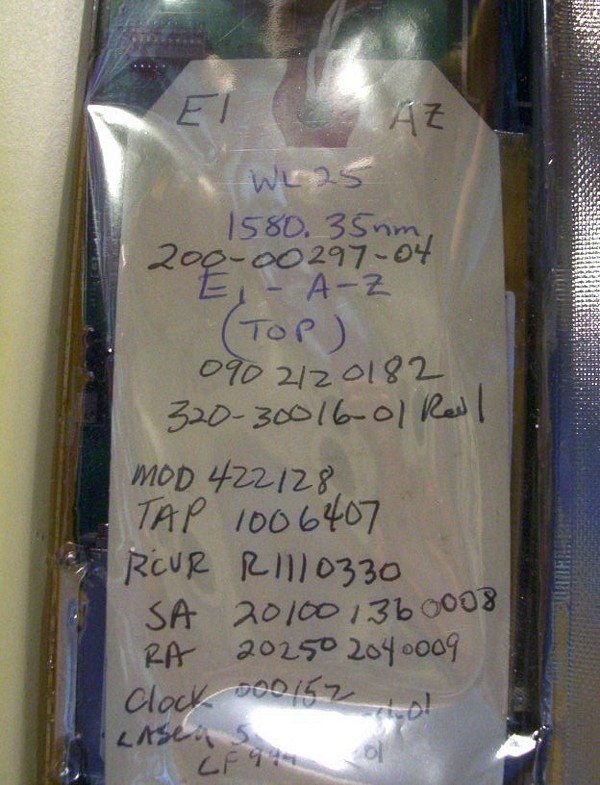 E1 AZ
WL 25
1580.35nm
200-00297-04
E1 - A-Z
(TOP)
090 212 0182
320-30016-01 Rev 1
MOD 422128
TAP 1006407
RCVR R1110330
SA 20100 136 0008
RA 20250 204 0009
Clock 000152
LASER